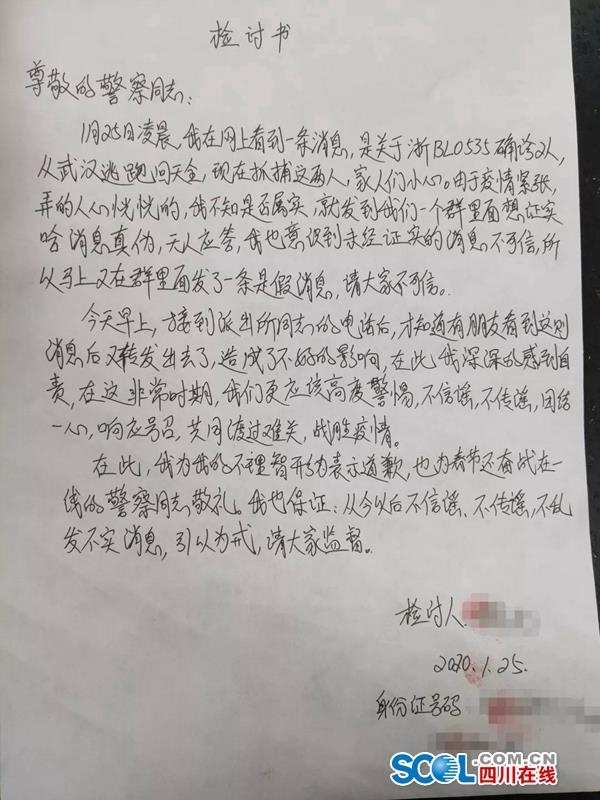 检讨书
尊敬的警察同志:
1月25日凌晨,我在网上看到一条消息,是关于浙BL0535确诊2人,
从武汉逃跑回天全,现在抓捕这两人,家人们小心。由于疫情紧张,
弄的人心恍恍的,我不知是否属实,就发到我们一个群里面想证实
啥消息真伪,无人应答,我也意识到未经证实的消息不可信,所
以马上又在群里面发了一条是假消息,请大家不可信。
今天早上,接到派出所同志的电话后,才知道有朋友看到这则
消息后又转发出去了,造成了不好的影响,在此我深深的感到自
责,在这非常时期,我们更应该高度警惕,不信谣,不传谣,团结
一心,响应号召,共同渡过难关,战胜疫情。
在此,我为我的不理智行为表示道歉,也为春节还奋战在一
线的警察同志敬礼。我也保证:从今以后不信谣、不传谣,不乱
发不实消息,引以为戒,请大家监督。
检讨人:
2020.1.25.
身份证号码
SCOL.COM.CN
四川在线